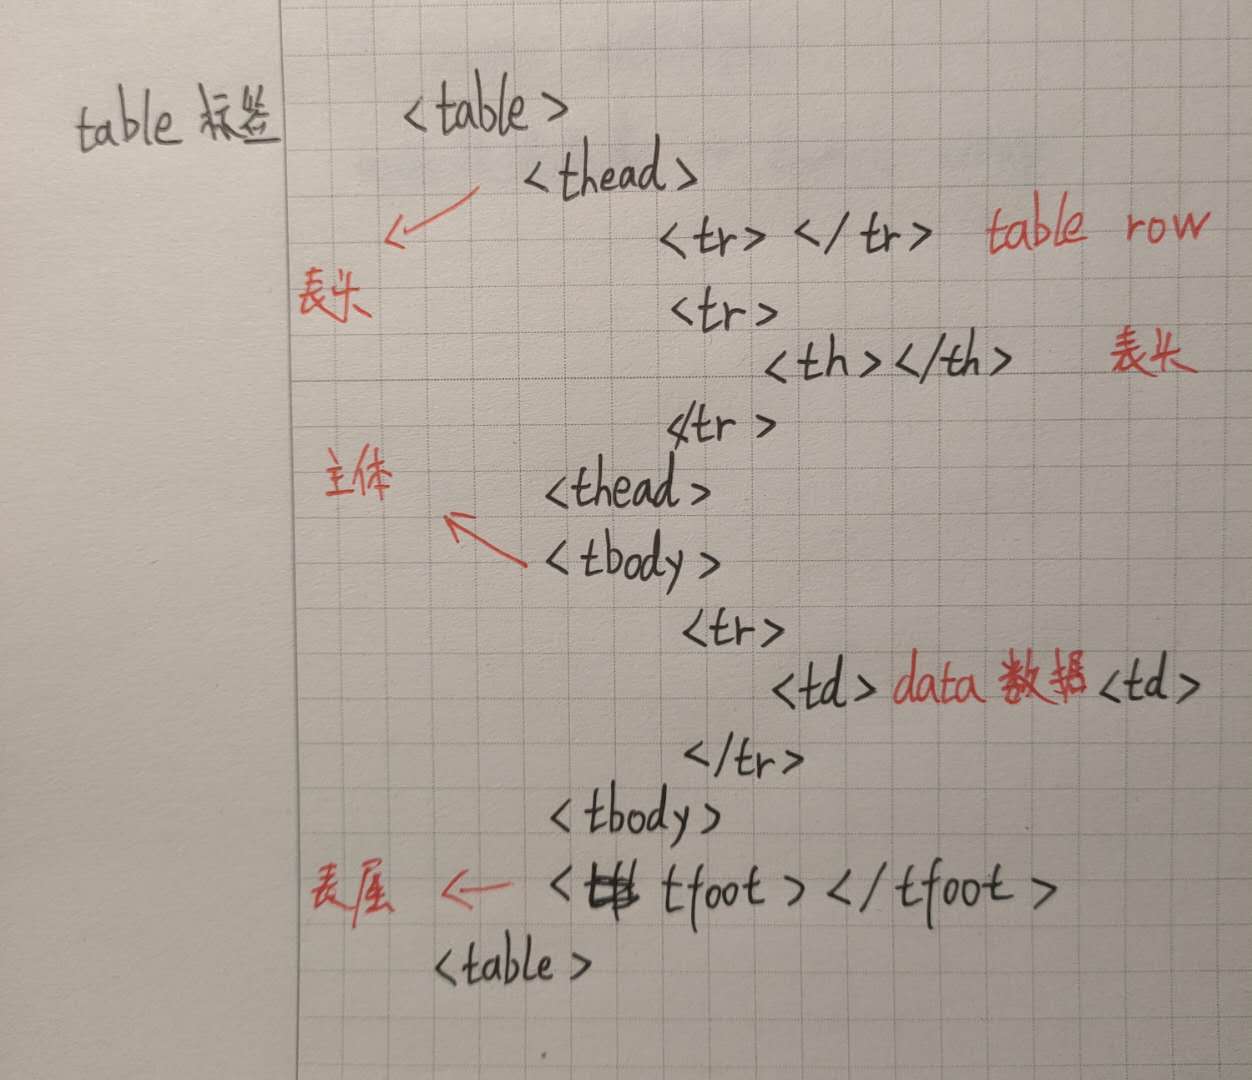 table 标签 <table>
<thead>
<tr> </tr> table row
表头
<tr>
<th></th> 表头
</tr>
主体
<thead>
<tbody>
<tr>
<td> data 数据 <td>
</tr>
<tbody>
表尾 < tfoot></tfoot>
<table>